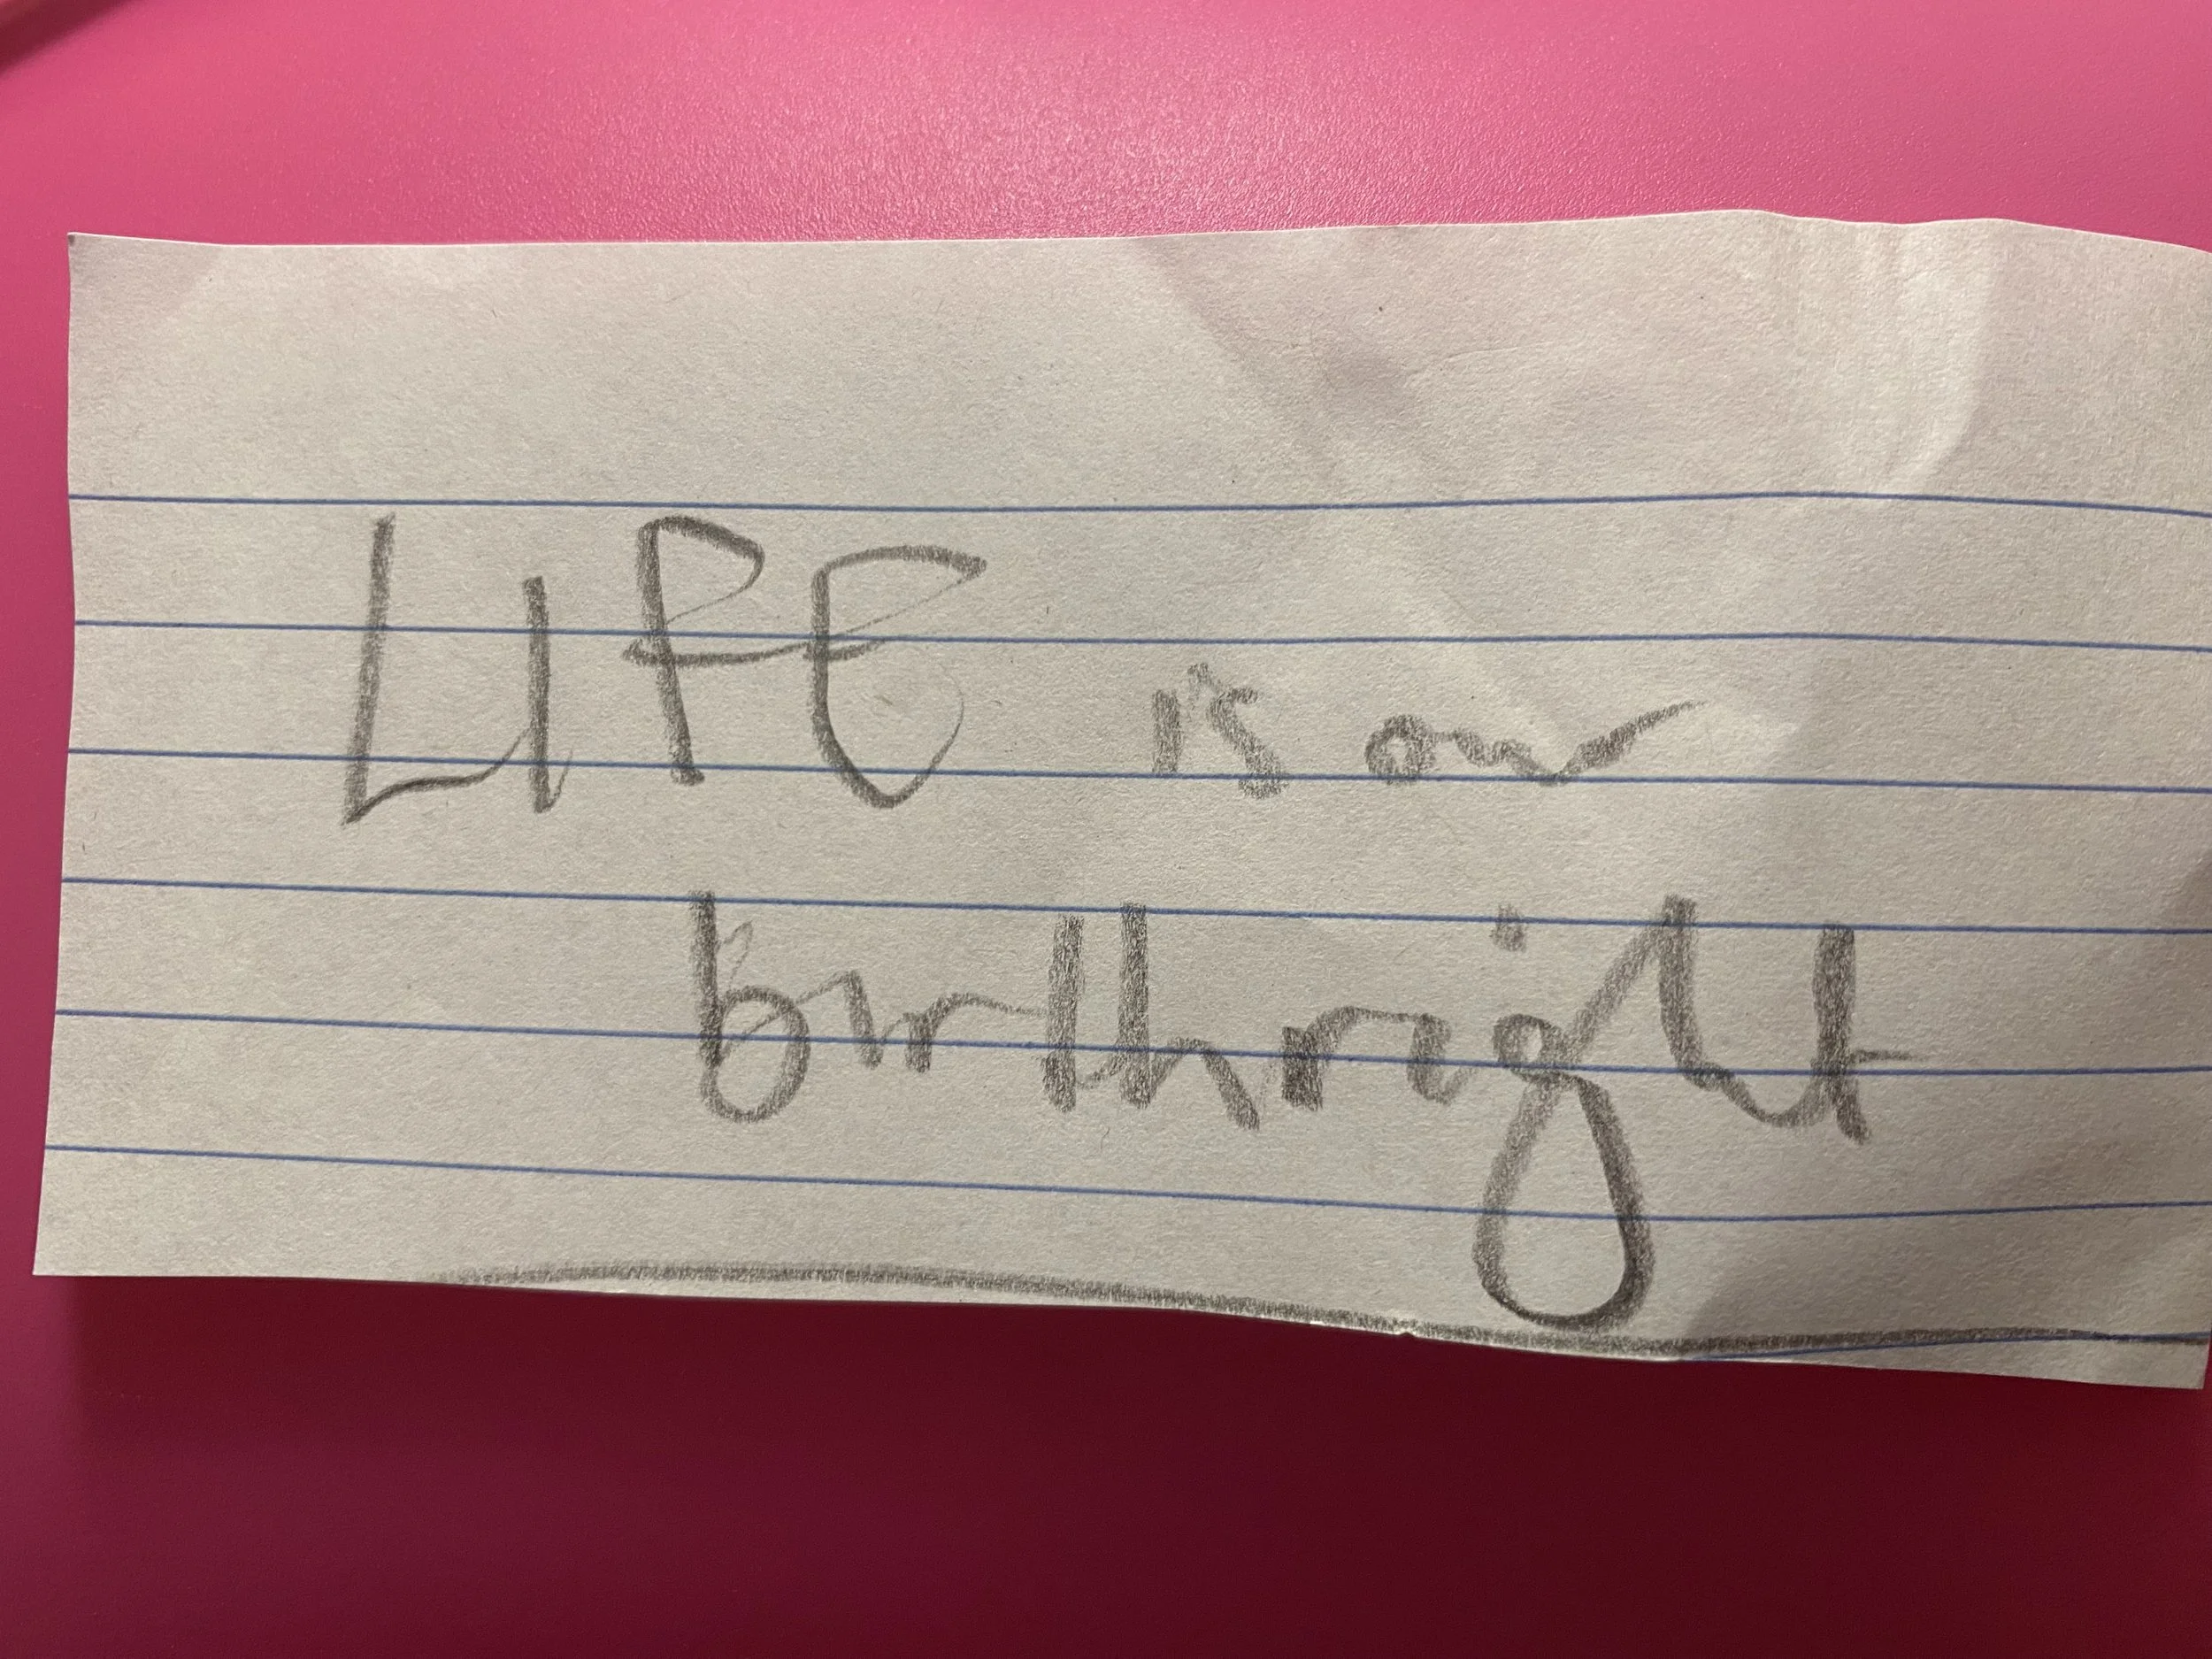 LIFE is our
birthright